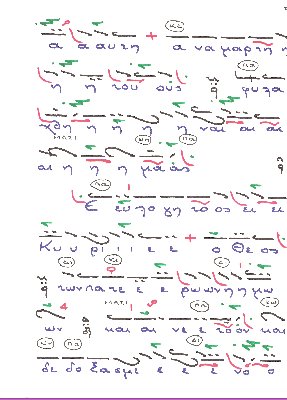 α α αυτη α να μαρτη η
η η του ους φυλα
χθη η η η η ναι αι αι
αι η η η μα ας
Ε ευ λο γη το ος ει ει
Κυ υ ρι ι ι ε ε ο Θε ος
των πα τε ε ε ρω ων η μω
ων και αι νε ε το όν και
δε δο ξα σμε ε ε ε νο ο